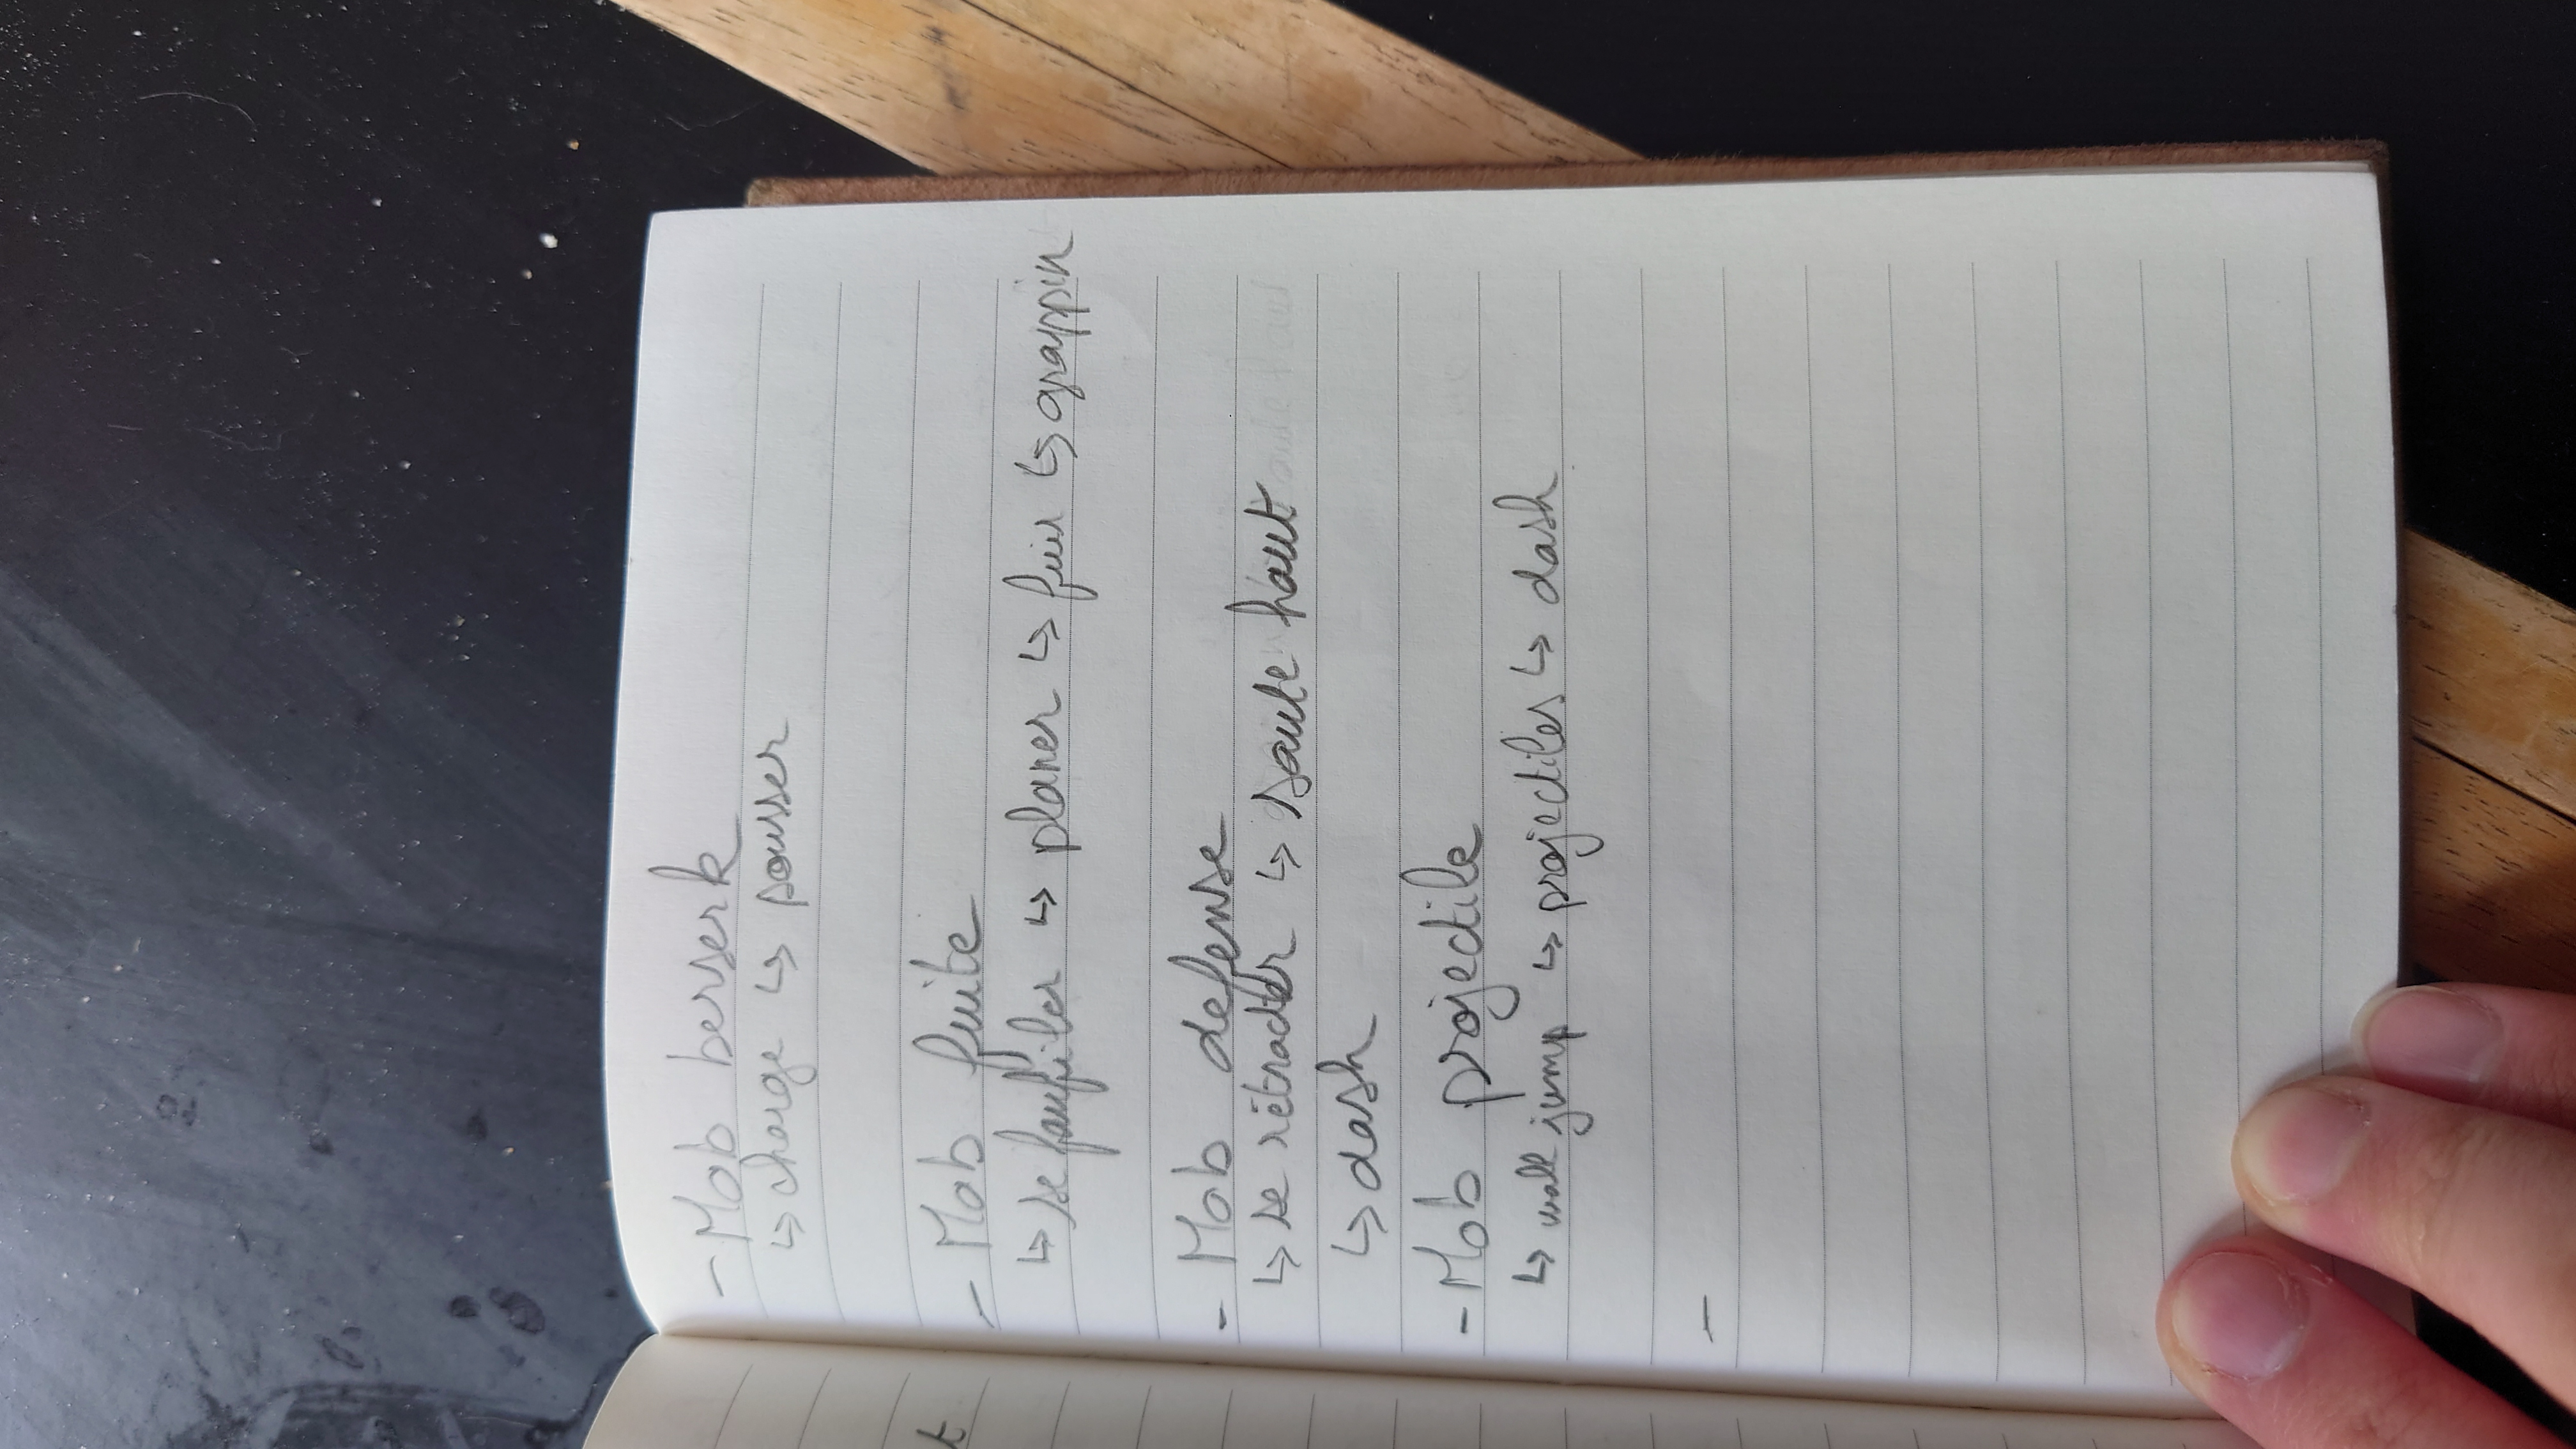 - Mob berserk
↳ charge ↳ pousser
t
- Mob fuite
↳ se faufiler ↳ planer ↳ fuir ↳ grappin
- Mob defense
↳ se rétracter ↳ saute haut
↳ dash
- Mob projectile
↳ wall jump ↳ projectiles ↳ dash
-